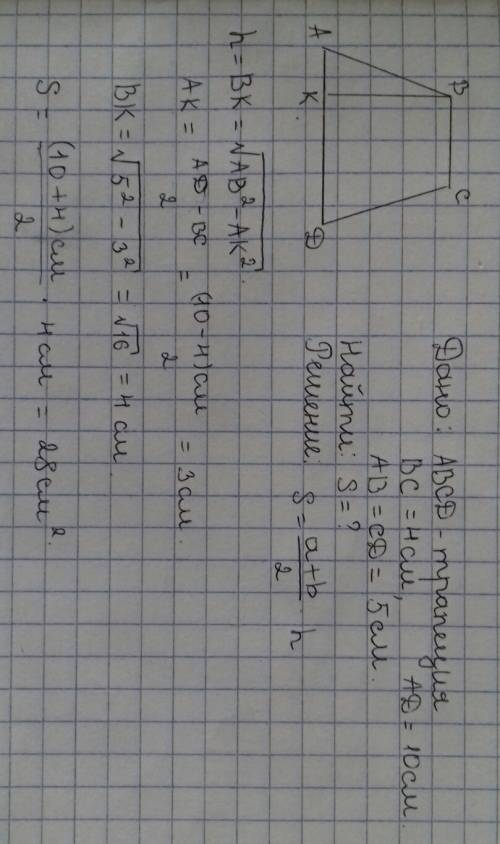 B C
A K D
Дано: ABCD - трапеция
BC = 4 см, AD = 10 см.
AB = CD = 5 см.
Найти: S = ?
Решение: S = \frac{a+b}{2} · h
h = BK = √(AB² - AK²).
AK = \frac{AD - BC}{2} = \frac{(10-4) см}{2} = 3 см.
BK = √(5² - 3²) = √16 = 4 см.
S = \frac{(10+4) см}{2} · 4 см = 28 см².